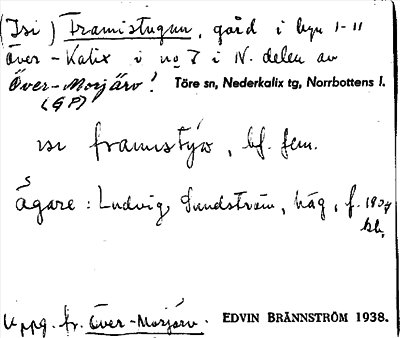 (Isi) Framistugun, gård i byn 1-11
Över-Kalix i no 7 i N. delen av
Över-Morjärv! Töre sn, Nederkalix tg, Norrbottens l.
(GP)
isi framistýω, bf. fem.
s
ägare: Ludvig Sundström, häg, f. 1904
kh.
Uppg. fr. Över-Morjärv. EDVIN BRÄNNSTRÖM 1938.